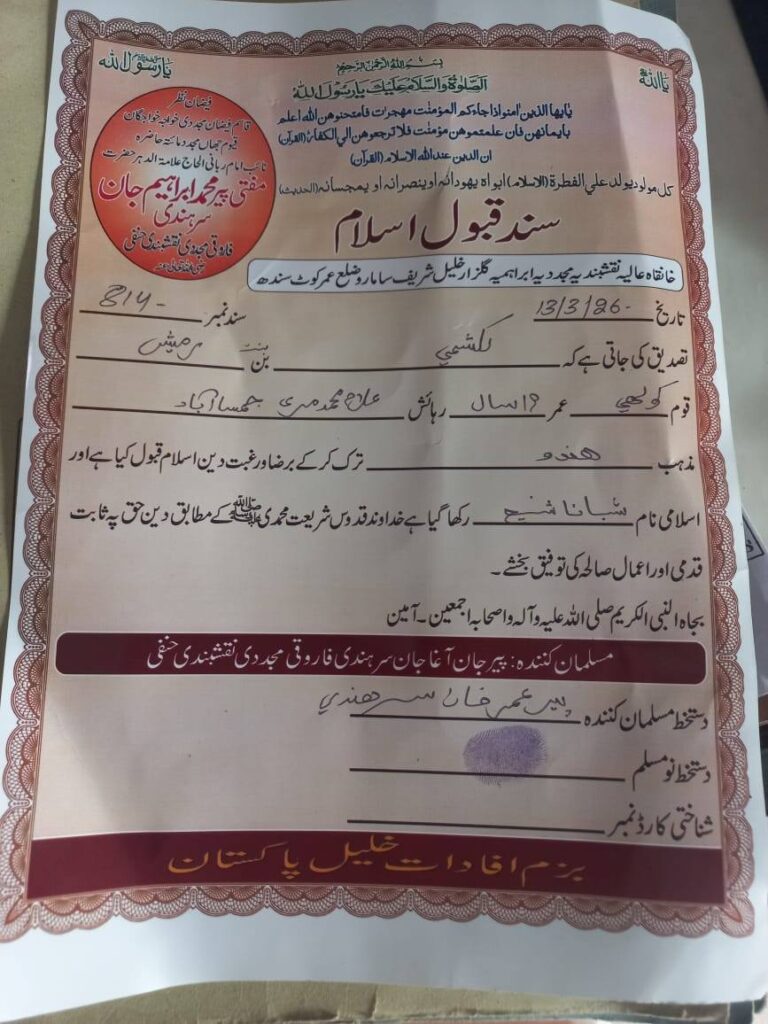 یا اللہ
یا رسول اللہ
بسم اللہ الرحمن الرحیم
الصلوۃ والسلام علیک یا رسول اللہ
یایها الذین امنوا اذا جاءکم المؤمنت مهجرات فامتحنوهن الله اعلم
بایمانهن فان علمتموهن مؤمنت فلا ترجعوهن الی الکفار (القرآن)
ان الدین عند الله الاسلام (القرآن)
کل مولود یولد علی الفطرة (الاسلام) ابواه یهودانه او ینصرانه او یمجسانه (الحدیث)
فیضان نظر
قاسم فیضان مجددی خواجہ خواجگان
قیوم جہاں مجدد مائتہ حاضرہ
نائب امام ربانی الحاج علامۃ الدہر حضرت
مفتی پیر محمد ابراہیم جان
سرہندی
فاروقی مجددی نقشبندی حنفی
سند قبول اسلام
خانقاہ عالیہ نقشبندیہ مجددیہ ابراہیمیہ گلزار خلیل شریف سامارو ضلع عمر کوٹ سندھ
تاریخ 13/3/26- سند نمبر 814-
تصدیق کی جاتی ہے کہ لکشمي بن بنت رمیش
قوم کولهي عمر 19 سال رہائش غلام محمد مری
مذہب ھندو ترک کر کے برضا و رغبت دین اسلام قبول کیا ہے اور
اسلامی نام شبانا شیخ رکھا گیا ہے خداوند قدوس شریعت محمدی ﷺ کے مطابق دین حق پہ ثابت
قدمی اور اعمال صالحہ کی توفیق بخشے۔
بجاہ النبی الکریم صلی اللہ علیہ وآلہ واصحابہ اجمعین۔ آمین
مسلمان کنندہ: پیر جان آغا جان سرہندی فاروقی مجددی نقشبندی حنفی
دستخط مسلمان کنندہ پیر عمر جان سرهندي
دستخط نو مسلم
شناختی کارڈ نمبر
بزم افادات خلیل پاکستان